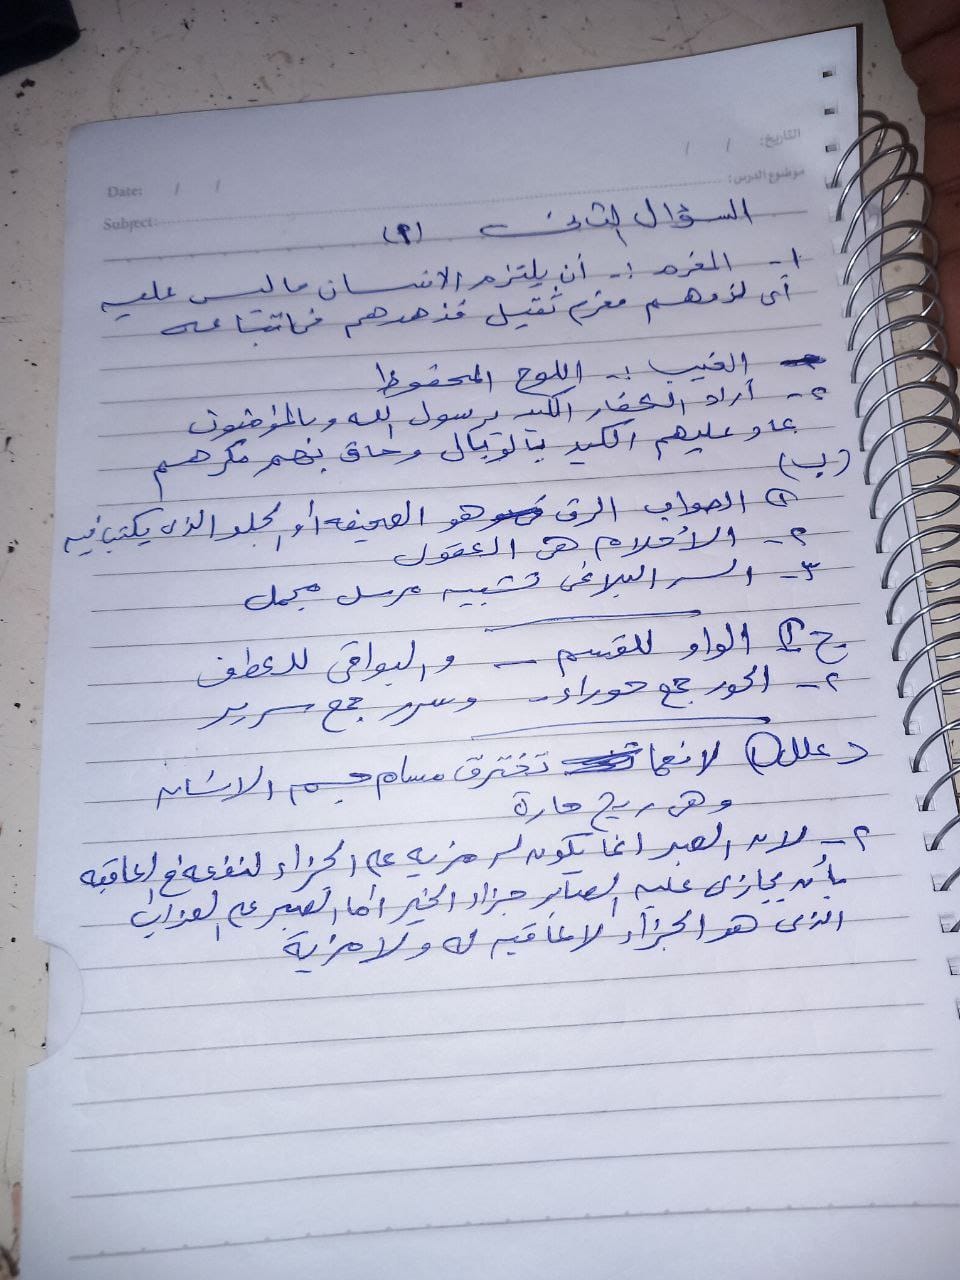 التاريخ: / /
Date: / /
موضوع الدرس:
Subject:
السؤال الثانى (٩)
١- المغرم :- أن يلتزم الانسان ما ليس عليه
أى لزمهم مغرم ثقيل فزهدهم فى اتباعه
الغيب :- اللوح المحفوظ
٢- أراد الكفار الكيد برسول الله وبالمؤمنون
عاد عليهم الكيد بالوبال وحاق بهم مكرهم
(ب)
١ الصواب الرق هو الصحيفه أو الجلد الذى يكتب فيه
٢- الأحلام هى العقول
٣- السر البلاغى تشبيه مرسل مجمل
ج ١ الواو للقسم - والبواقى للعطف
٢- الحور جمع حوراء - وسرر جمع سرير
د علل ١ لانها تخترق مسام جسم الانسان
وهى ريح حارة
٢- لان الصبر انما يكون له مزيه على الجزاء لنفعه فى العاقبه
بأن يجازى عليه الصابر جزاء الخير اما الصبر على العذاب
الذى هو الجزاء لا عاقبه له ولا مزية